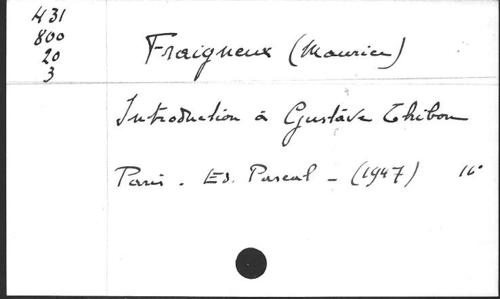 431
800
20
3
Fraigneux (Maurice)
Introduction à Gustave Thibon
Paris. Ed. Pascal - (1947) 16°